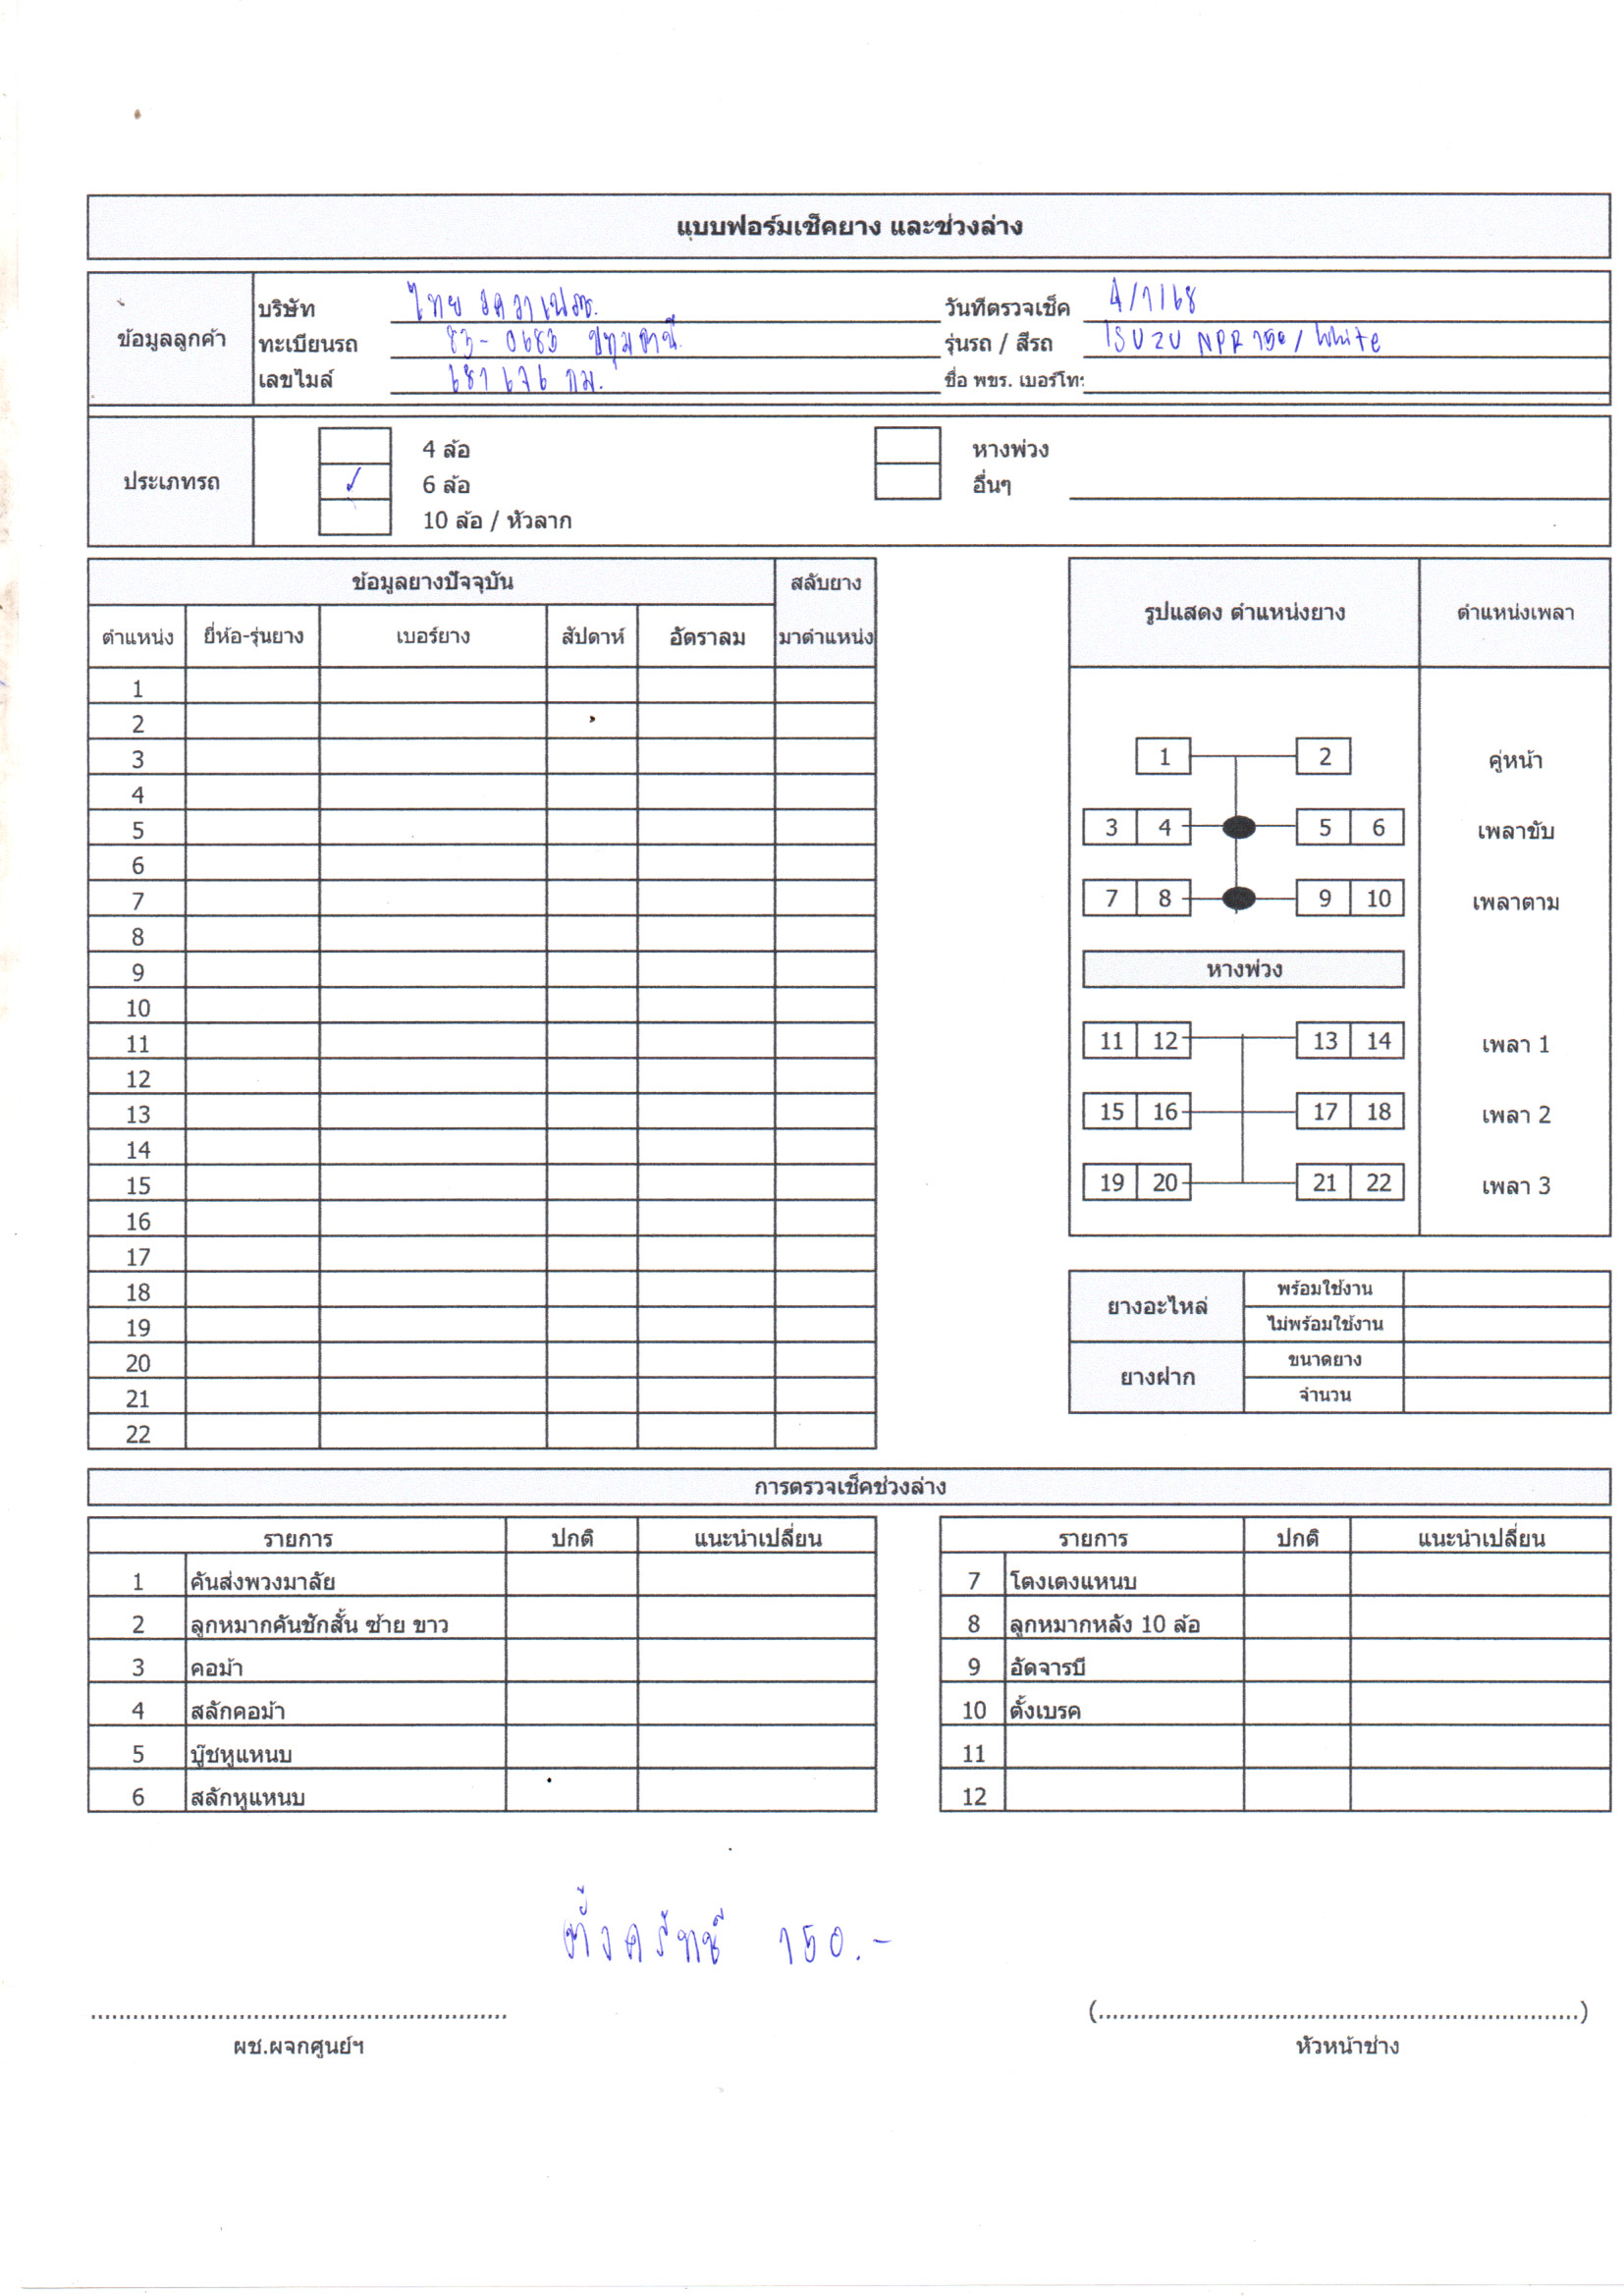 แบบฟอร์มเช็คยาง และช่วงล่าง
ข้อมูลลูกค้า
บริษัท ไทย
วันที่ตรวจเช็ค 4/1/68
ทะเบียนรถ 83-0683 ปทุมธานี
รุ่นรถ / สีรถ ISUZU NPR 150 / White
เลขไมล์ 681676 กม.
ชื่อ พขร. เบอร์โทร
ประเภทรถ
4 ล้อ หางพ่วง
✓ 6 ล้อ อื่นๆ
10 ล้อ / หัวลาก
ข้อมูลยางปัจจุบัน สลับยาง
ตำแหน่ง ยี่ห้อ-รุ่นยาง เบอร์ยาง สัปดาห์ อัตราลม มาตำแหน่ง
1
2
3
4
5
6
7
8
9
10
11
12
13
14
15
16
17
18
19
20
21
22
รูปแสดง ตำแหน่งยาง ตำแหน่งเพลา
1 2 คู่หน้า
3 4 5 6 เพลาขับ
7 8 9 10 เพลาตาม
หางพ่วง
11 12 13 14 เพลา 1
15 16 17 18 เพลา 2
19 20 21 22 เพลา 3
ยางอะไหล่ พร้อมใช้งาน
ไม่พร้อมใช้งาน
ยางฝาก ขนาดยาง
จำนวน
การตรวจเช็คช่วงล่าง
รายการ ปกติ แนะนำเปลี่ยน
1 คันส่งพวงมาลัย
2 ลูกหมากคันชักสั้น ซ้าย ขาว
3 คอม้า
4 สลักคอม้า
5 บู๊ชหูแหนบ
6 สลักหูแหนบ
รายการ ปกติ แนะนำเปลี่ยน
7 โตงเตงแหนบ
8 ลูกหมากหลัง 10 ล้อ
9 อัดจารบี
10 ตั้งเบรค
11
12
ตั้งครัทช์ 150.-
ผช.ผจกศูนย์ฯ
(..........)
หัวหน้าช่าง